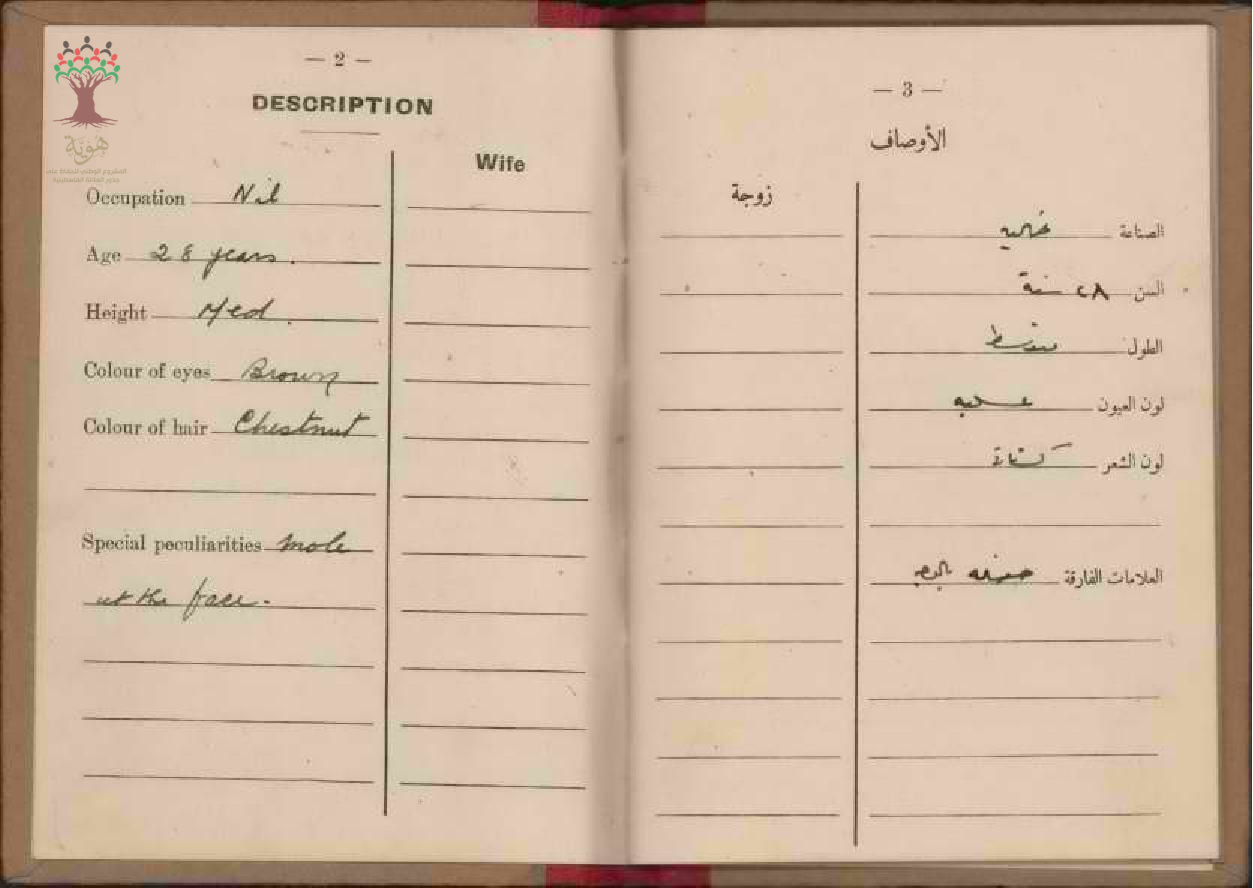 هوية
— 2 —
DESCRIPTION
Wife
Occupation Nil
Age 28 years.
Height Med.
Colour of eyes Brown
Colour of hair Chestnut
Special peculiarities mole
at the face.
— 3 —
الأوصاف
زوجة
الصناعة
السن ٢٨ سنة
الطول متوسط
لون العيون عسليه
لون الشعر
العلامات الفارقة بالوجه